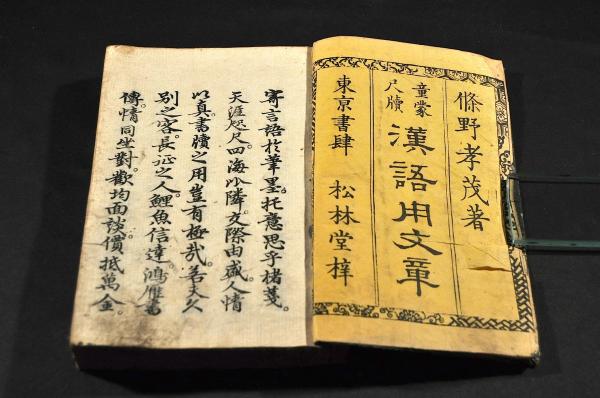 條野孝茂著
童蒙
尺牘
漢語用文章
東京書肆 松林堂梓
寄言語於筆墨。托意思乎楮箋。
天涯咫尺。四海比隣。交際由盛人情
以真。書牘之用豈有極哉。若夫久
別之客。長征之人。鯉魚信達。鴻雁書
傳。情同坐對。歡均面談。價抵萬金。